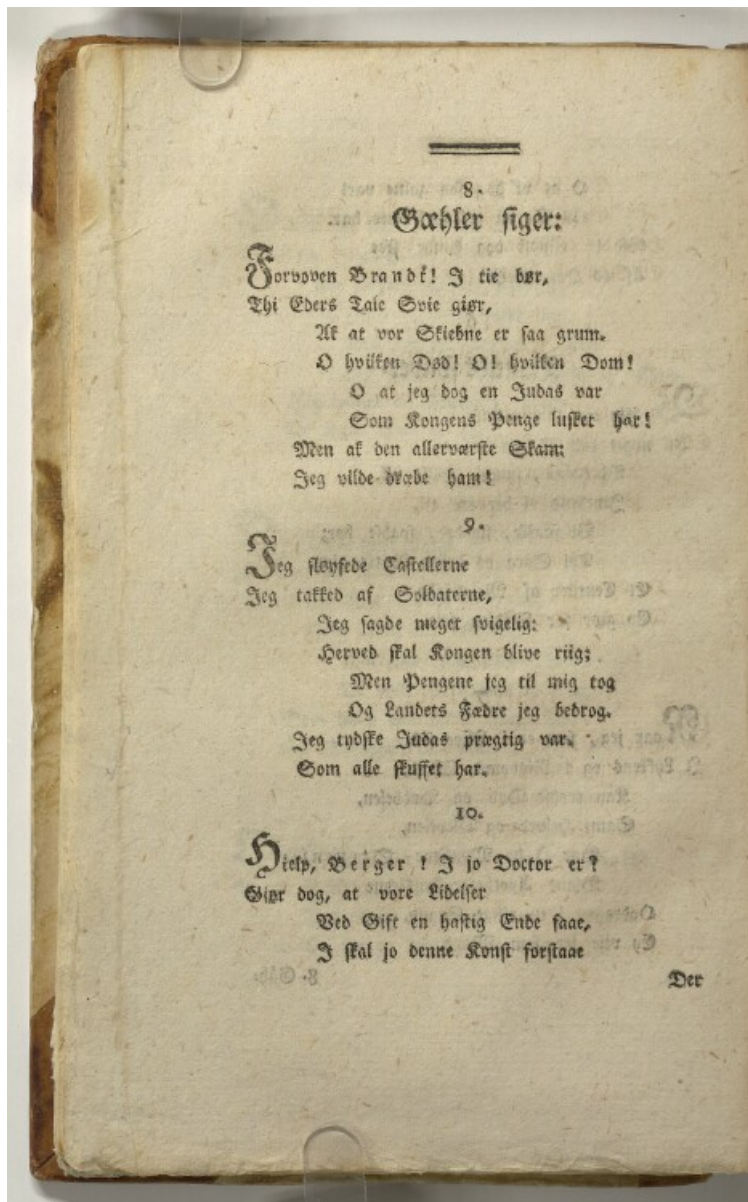 8.
Gæhler siger:
Forvoven Brandt! I tie bør,
Thi Eders Tale Svie giør,
Ak at vor Skiebne er saa grum.
O hvilken Død! O! hvilken Dom!
O at jeg dog en Judas var
Som Kongens Penge lusket har!
Men ak den allerværste Skam:
Jeg vilde dræbe ham!
9.
Jeg sløyfede Castellerne
Jeg takked af Soldaterne,
Jeg sagde meget svigelig:
Herved skal Kongen blive riig;
Men Pengene jeg til mig tog
Og Landets Fædre jeg bedrog.
Jeg tydske Judas prægtig var.
Som alle skuffet har.
10.
Hielp, Berger ! I jo Doctor er?
Giør dog, at vore Lidelser
Ved Gift en hastig Ende faae,
I skal jo denne Konst forstaae
Der